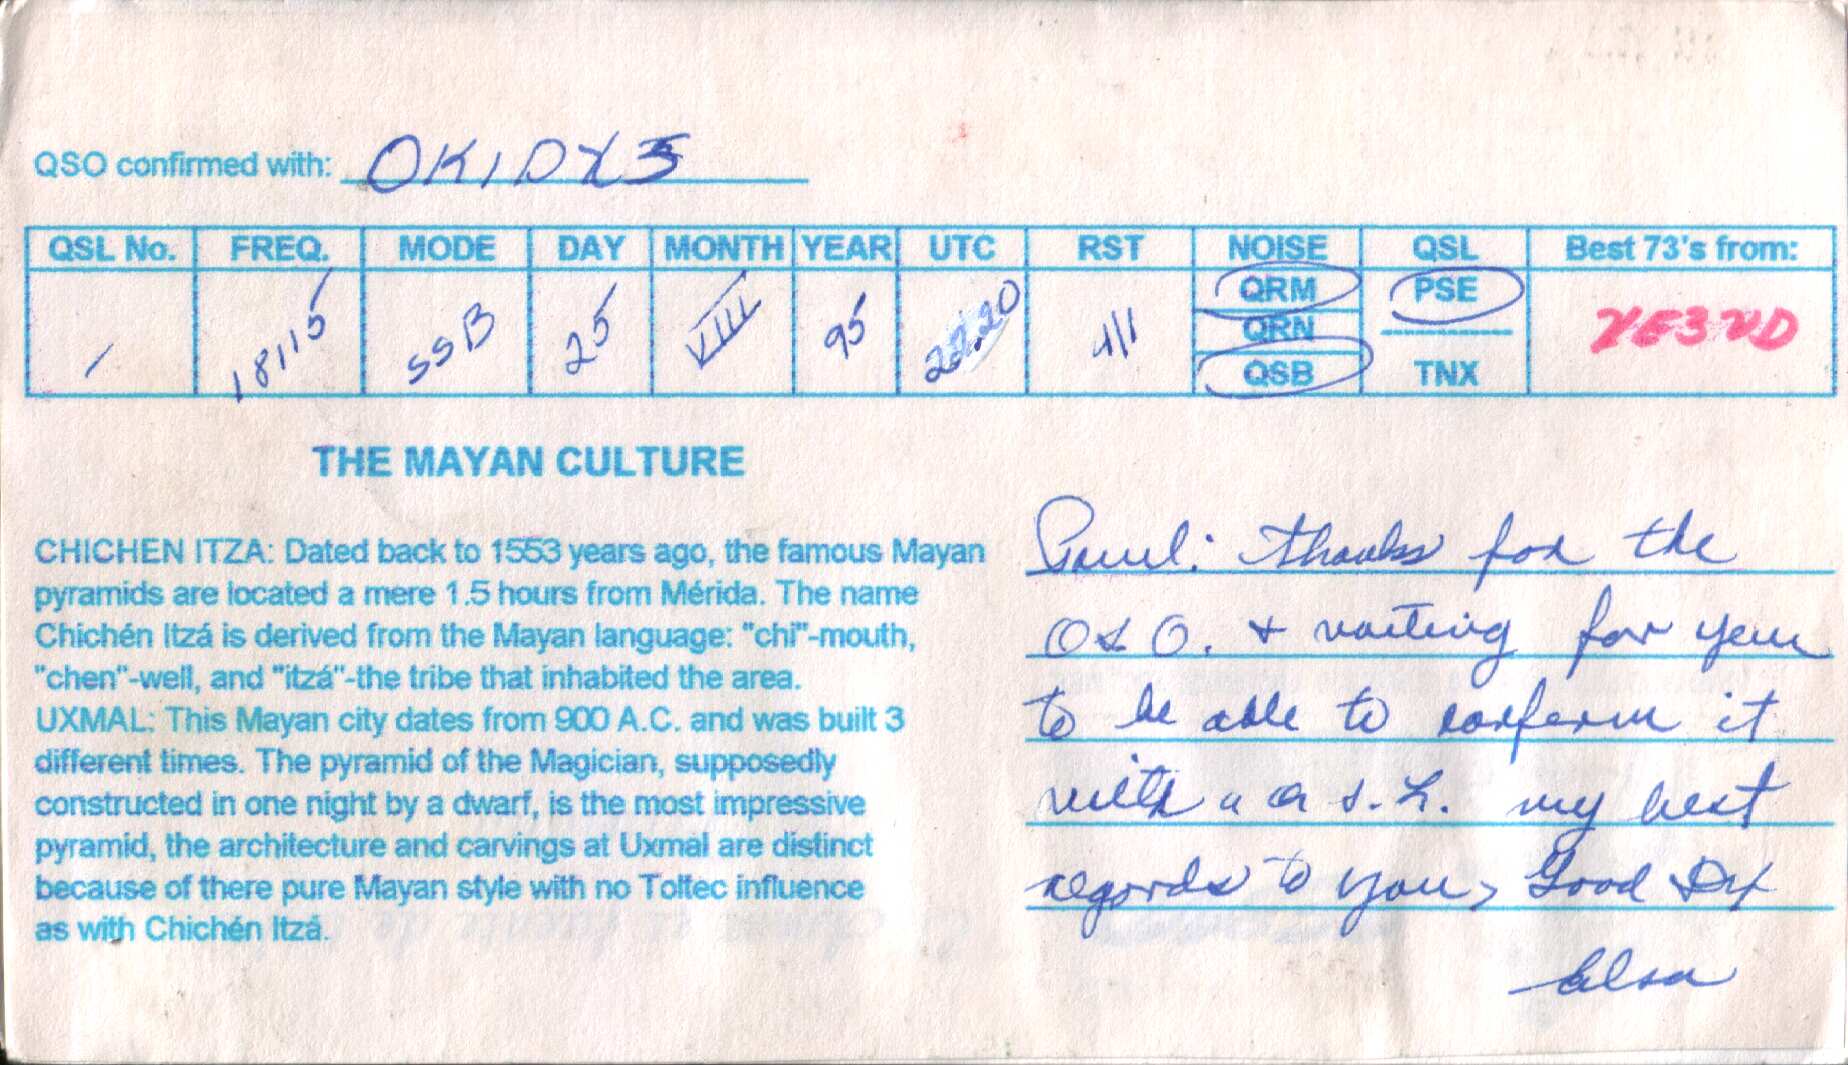 QSO confirmed with: OK1DX3
QSL No. FREQ. MODE DAY MONTH YEAR UTC RST NOISE QSL Best 73's from:
/ 18115 SSB 25 VIII 95 22.20 QRM PSE
QRN
QSB TNX
THE MAYAN CULTURE
CHICHEN ITZA: Dated back to 1553 years ago, the famous Mayan
pyramids are located a mere 1.5 hours from Mérida. The name
Chichén Itzá is derived from the Mayan language: "chi"-mouth,
"chen"-well, and "itzá"-the tribe that inhabited the area.
UXMAL: This Mayan city dates from 900 A.C. and was built 3
different times. The pyramid of the Magician, supposedly
constructed in one night by a dwarf, is the most impressive
pyramid, the architecture and carvings at Uxmal are distinct
because of there pure Mayan style with no Toltec influence
as with Chichén Itzá.
thanks for the
QSO. + waiting for your
to be able to conferm it
with a QSL. my best
regards to you, Good DX
Elsa